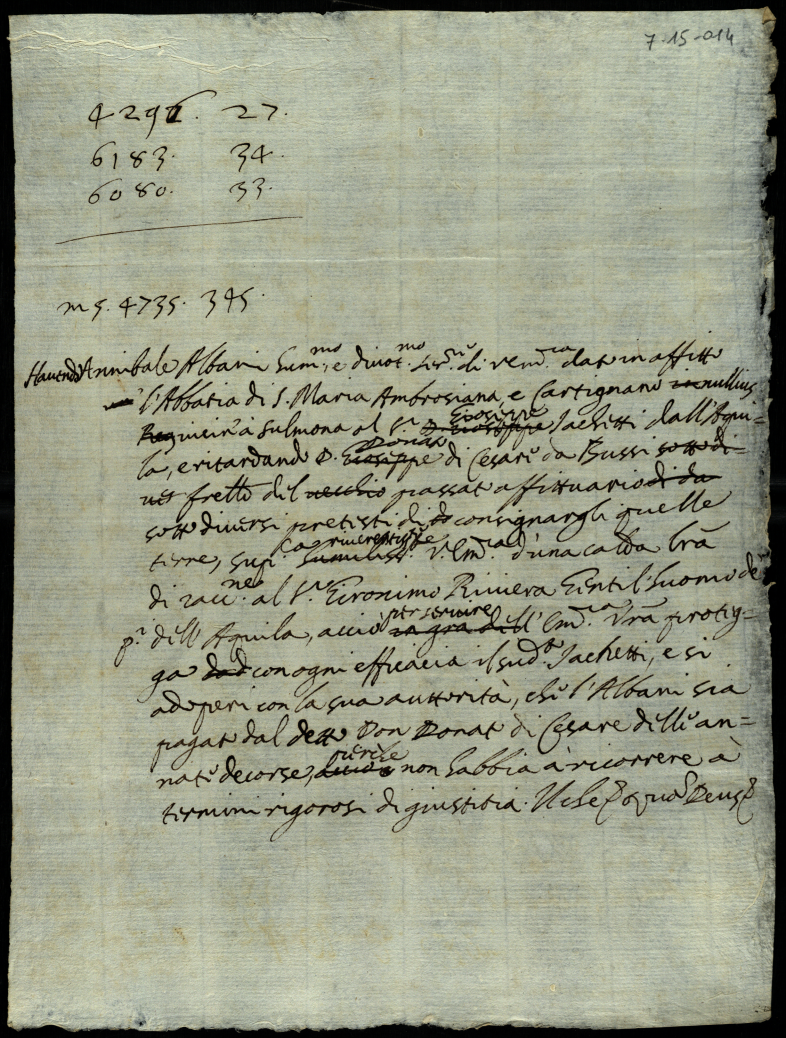 7-15-014
4296. 27.
6183. 34.
6080. 33.
m 5. 4735. 345.
Havendo Annibale Albani hum.mo, e divot.mo ser.re di V. Em.za dato in affitto
l'Abbatia di S. Maria Ambrosiana, e Cartignano in nullius
vicin'a Sulmona al S.r D. Gioseppe Gioseppe Jachetti dall'Aqui=
la, e ritardando D. Gioseppe Donato di Cesare da Bussi sotto di=
fretto del vecchio passato affittuario di da
sotto diversi pretesti di consignargli quelle
terre, sup.ca humiliss. riverentissime V. Em.za d'una calda lrã
di racc.ne al S.r Geronimo Rivera Gentil'huomo de
p.ri dell'Aquila, acciò in gra dell' per servire Em.za Vrã protig=
ga con ogni efficacia il sud.o Jachetti, e si
adoperi con la sua auttorità, che l'Albani sia
pagato dal detto Don Donato di Cesare delle an=
nate decorse, acciò perche non habbia à ricorrere à
termini rigorosi di giustitia. Che